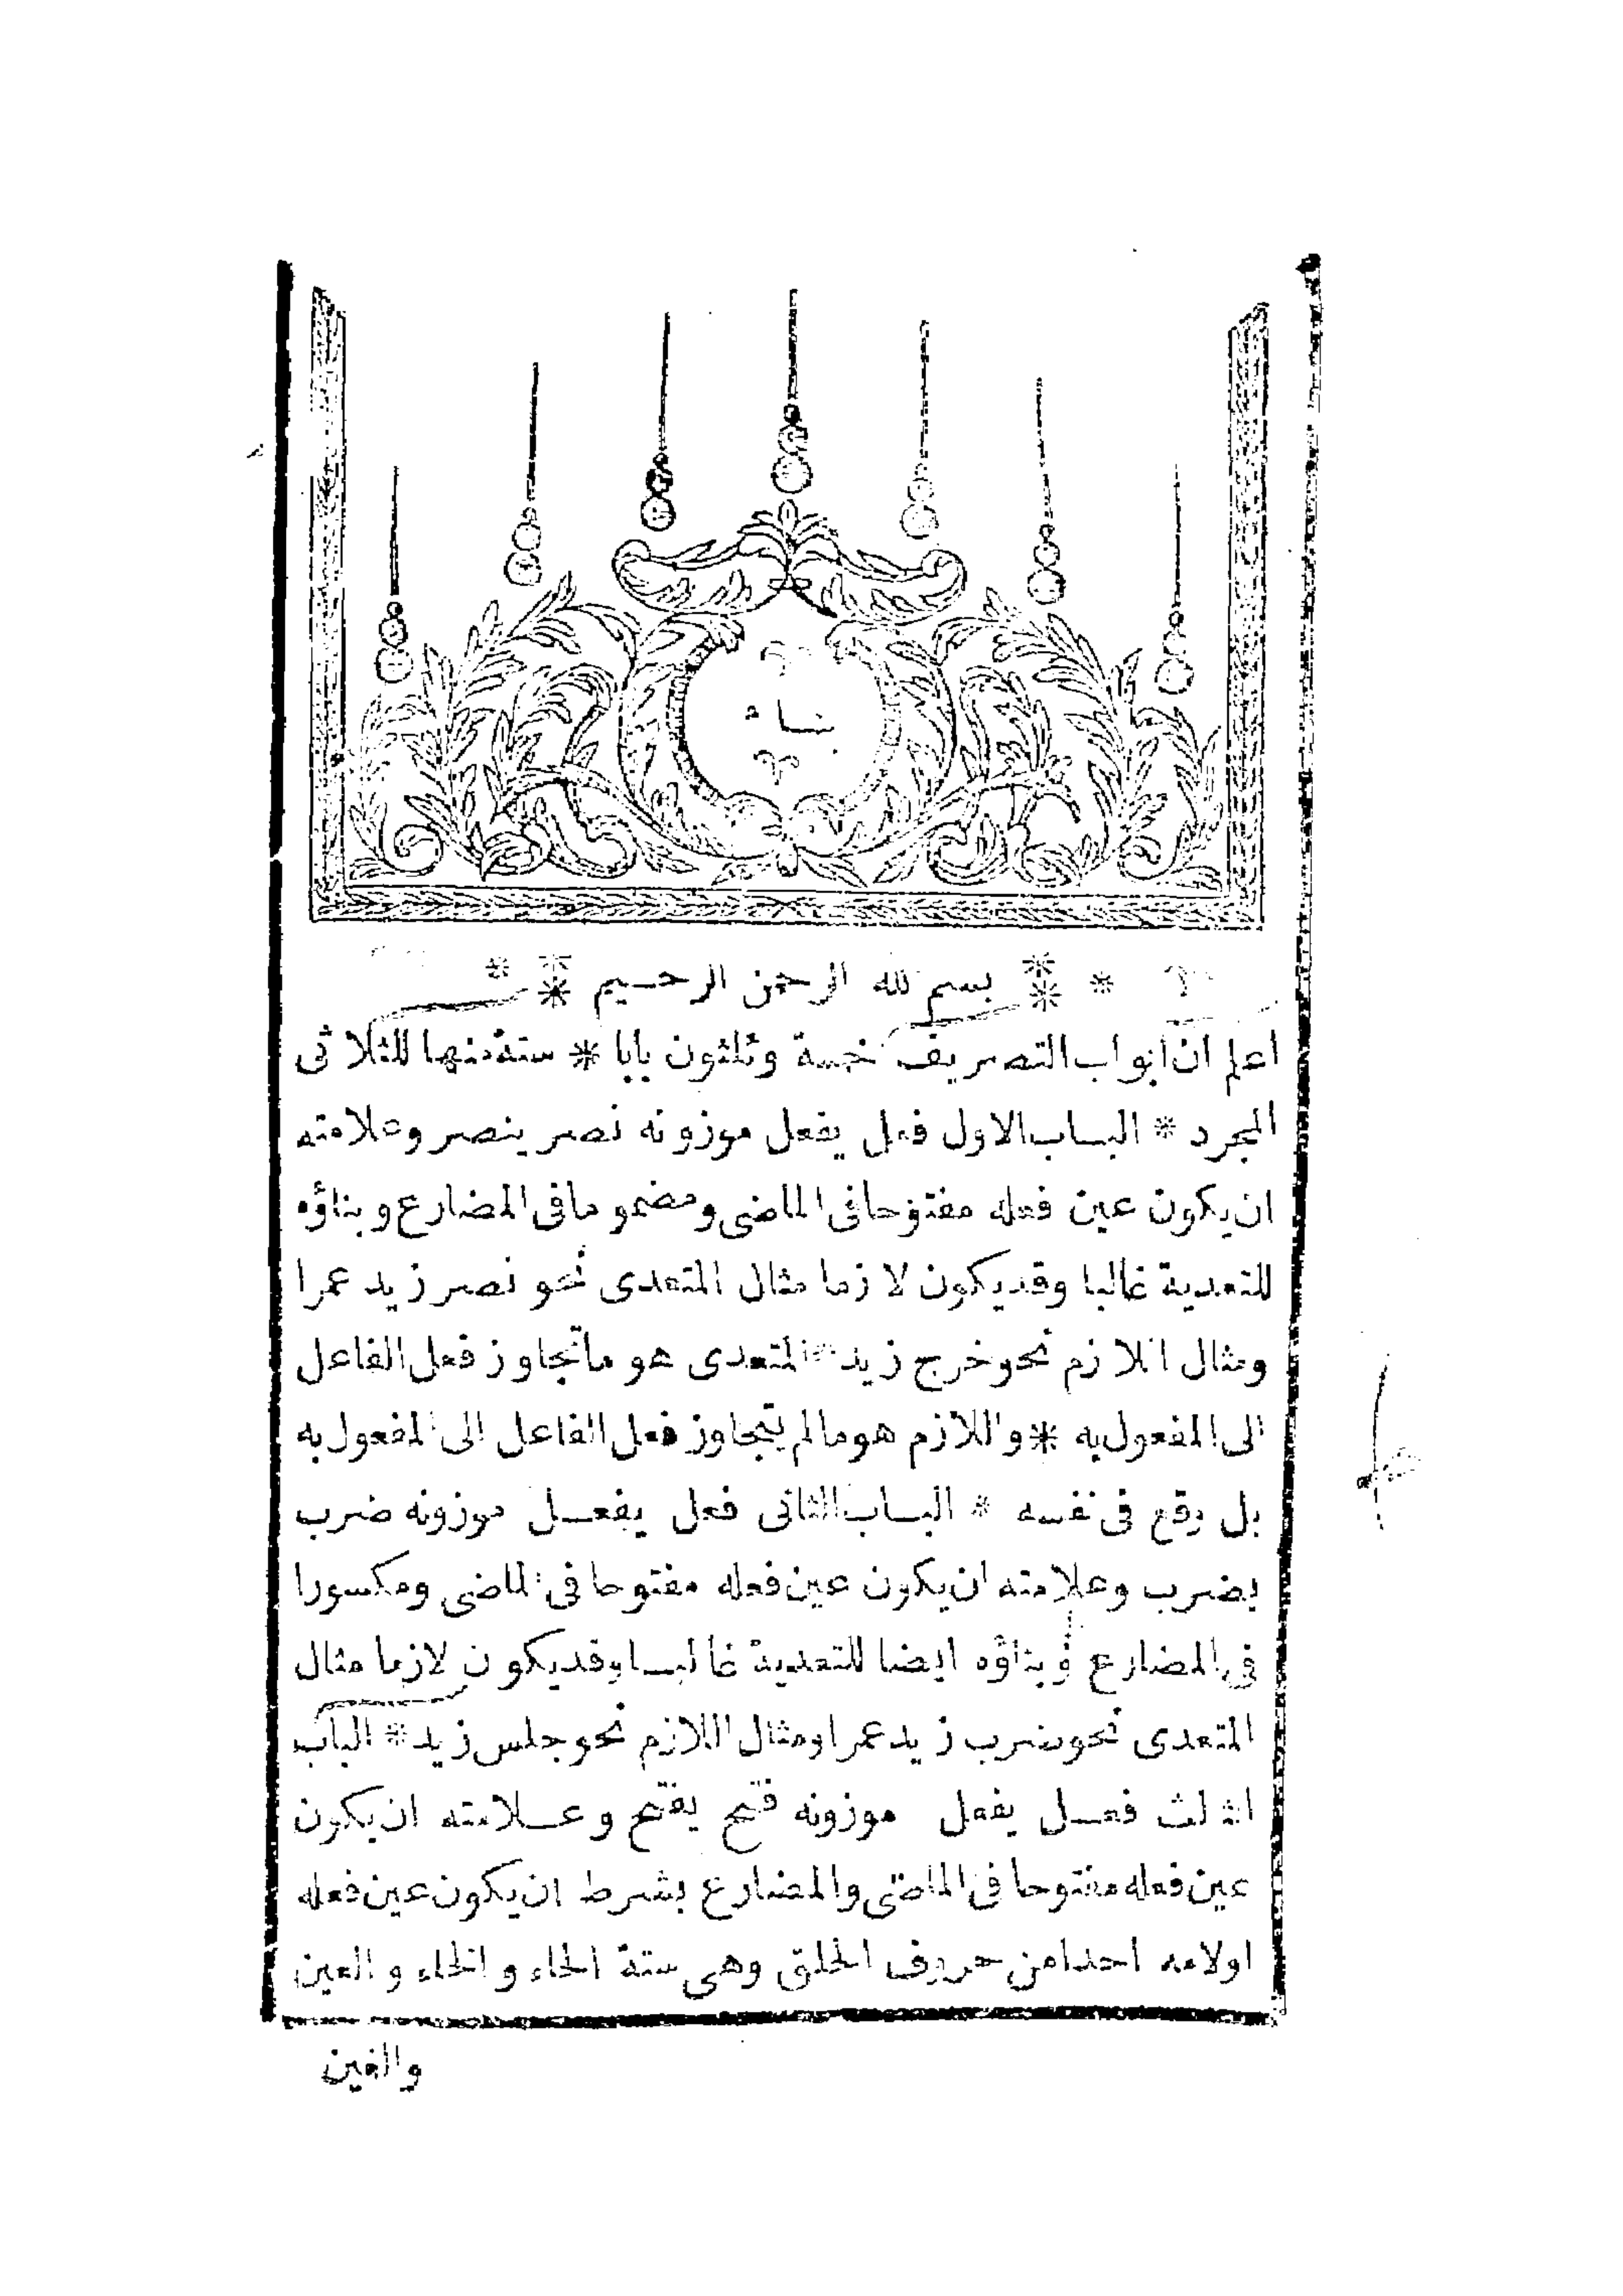 بناء
* بسم الله الرحمن الرحيم *
اعلم ان ابواب التصريف خمسة وثلثون بابا * ستة منها للثلاثى
المجرد * الباب الاول فعل يفعل موزونه نصر ينصر وعلامته
ان يكون عين فعله مفتوحا فى الماضى ومضموما فى المضارع وبناؤه
للتعدية غالبا وقد يكون لازما مثال المتعدى نحو نصر زيد عمرا
ومثال اللازم نحو خرج زيد * المتعدى هو ما تجاوز فعل الفاعل
الى المفعول به * واللازم هو ما لم يتجاوز فعل الفاعل الى المفعول به
بل وقع فى نفسه * الباب الثانى فعل يفعل موزونه ضرب
يضرب وعلامته ان يكون عين فعله مفتوحا فى الماضى ومكسورا
فى المضارع وبناؤه ايضا للتعدية غالبا وقد يكون لازما مثال
المتعدى نحو ضرب زيد عمرا ومثال اللازم نحو جلس زيد * الباب
الثالث فعل يفعل موزونه فتح يفتح وعلامته ان يكون
عين فعله مفتوحا فى الماضى والمضارع بشرط ان يكون عين فعله
اولامه احدا من حروف الحلق وهى ستة الحاء والخاء والعين
والغين